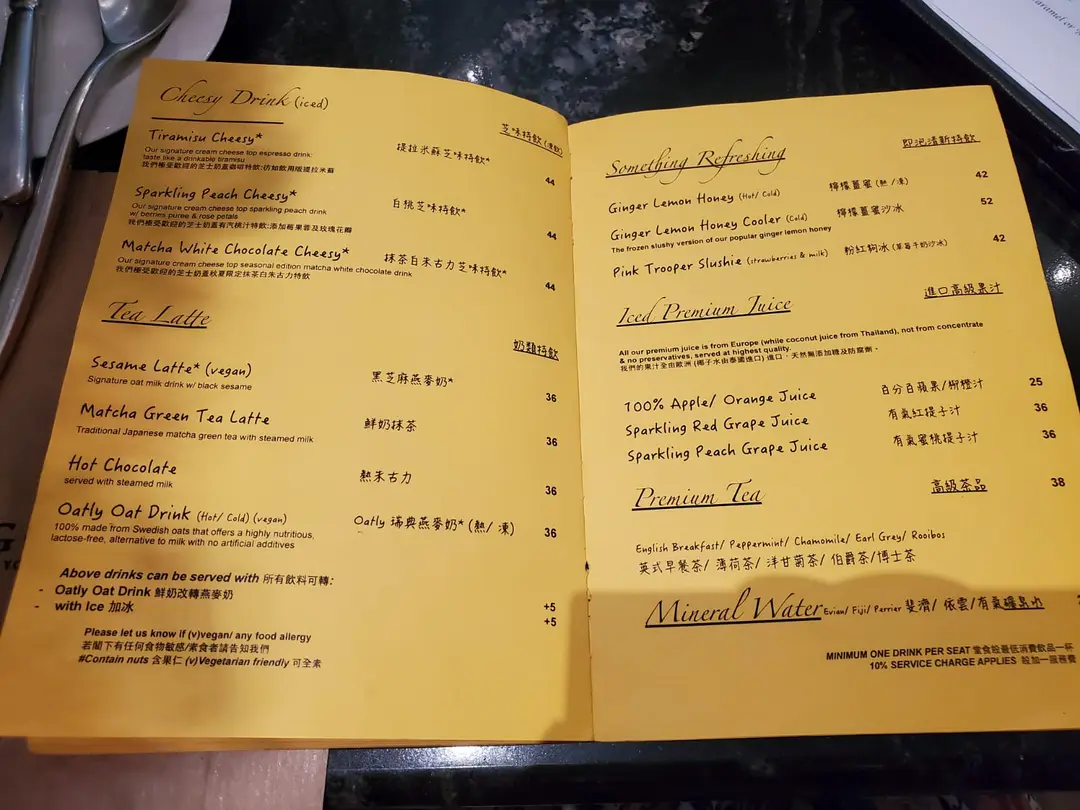 Cheesy Drink (iced)
芝味特飲 (凍飲)
Tiramisu Cheesy*
提拉米蘇芝味特飲*
Our signature cream cheese top espresso drink:
taste like a drinkable tiramisu
44
我們極受歡迎的芝士奶蓋咖啡特飲:仿如飲用版提拉米蘇
Sparkling Peach Cheesy*
白桃芝味特飲*
Our signature cream cheese top sparkling peach drink
w/ berries puree & rose petals
44
我們極受歡迎的芝士奶蓋有汽桃汁特飲:添加莓果蓉及玫瑰花瓣
Matcha White Chocolate Cheesy*
抹茶白朱古力芝味特飲*
Our signature cream cheese top seasonal edition matcha white chocolate drink
44
我們極受歡迎的芝士奶蓋秋夏限定抹茶白朱古力特飲
Tea Latte
奶類特飲
Sesame Latte* (vegan)
黑芝麻燕麥奶*
36
Signature oat milk drink w/ black sesame
Matcha Green Tea Latte
鮮奶抹茶
36
Traditional Japanese matcha green tea with steamed milk
Hot Chocolate
熱朱古力
36
served with steamed milk
Oatly Oat Drink (Hot/ Cold) (vegan)
Oatly 瑞典燕麥奶* (熱/ 凍)
36
100% made from Swedish oats that offers a highly nutritious,
lactose-free, alternative to milk with no artificial additives
Above drinks can be served with 所有飲料可轉:
- Oatly Oat Drink 鮮奶改轉燕麥奶
+5
- with Ice 加冰
+5
Please let us know if (v)vegan/ any food allergy
若閣下有任何食物敏感/素食者請告知我們
#Contain nuts 含果仁 (v)Vegetarian friendly 可全素
Something Refreshing
即泡清新特飲
Ginger Lemon Honey (Hot/ Cold)
檸檬薑蜜 (熱 /凍)
42
Ginger Lemon Honey Cooler (Cold)
檸檬薑蜜沙冰
52
The frozen slushy version of our popular ginger lemon honey
Pink Trooper Slushie (strawberries & milk)
粉紅夠冰 (草莓牛奶沙冰)
42
Iced Premium Juice
進口高級果汁
All our premium juice is from Europe (while coconut juice from Thailand), not from concentrate
& no preservatives, served at highest quality.
我們的果汁全由歐洲 (椰子水由泰國進口) 進口，天然無添加糖及防腐劑。
100% Apple/ Orange Juice
百分百蘋果/柳橙汁
25
Sparkling Red Grape Juice
有氣紅提子汁
36
Sparkling Peach Grape Juice
有氣蜜桃提子汁
36
Premium Tea
高級茶品
38
English Breakfast/ Peppermint/ Chamomile/ Earl Grey/ Rooibos
英式早餐茶/ 薄荷茶/ 洋甘菊茶/ 伯爵茶/博士茶
Mineral Water Evian/ Fiji/ Perrier 斐濟/ 依雲/有氣礦泉水
MINIMUM ONE DRINK PER SEAT 堂食設最低消費飲品一杯
10% SERVICE CHARGE APPLIES 設加一服務費